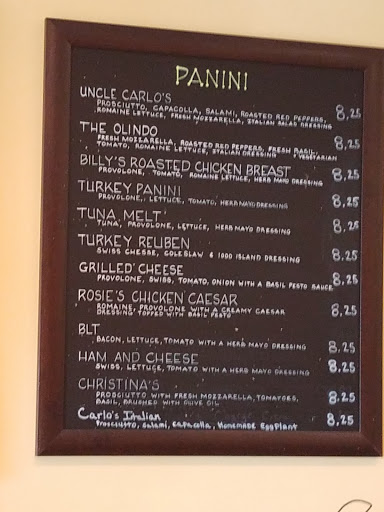 PANINI
UNCLE CARLO'S
PROSCIUTTO, CAPACOLLA, SALAMI, ROASTED RED PEPPERS, 8.25
ROMAINE LETTUCE, FRESH MOZZARELLA, ITALIAN SALAD DRESSING
THE OLINDO
FRESH MOZZARELLA, ROASTED RED PEPPERS, FRESH BASIL, 8.25
TOMATO, ROMAINE LETTUCE, ITALIAN DRESSING VEGETARIAN
BILLY'S ROASTED CHICKEN BREAST 8.25
PROVOLONE, TOMATO, ROMAINE LETTUCE, HERB MAYO DRESSING
TURKEY PANINI 8.25
PROVOLONE, LETTUCE, TOMATO, HERB MAYO DRESSING
TUNA MELT 8.25
TUNA, PROVOLONE, LETTUCE, HERB MAYO DRESSING
TURKEY REUBEN 8.25
SWISS CHEESE, COLESLAW & 1000 ISLAND DRESSING
GRILLED CHEESE 8.25
PROVOLONE, SWISS, TOMATO, ONION WITH A BASIL PESTO SAUCE
ROSIE'S CHICKEN CAESAR 8.25
ROMAINE, PROVOLONE WITH A CREAMY CAESAR
DRESSING TOPPED WITH BASIL PESTO
BLT 8.25
BACON, LETTUCE, TOMATO WITH A HERB MAYO DRESSING
HAM AND CHEESE 8.25
SWISS, LETTUCE, TOMATO WITH A HERB MAYO DRESSING
CHRISTINA'S 8.25
PROSCIUTTO WITH FRESH MOZZARELLA, TOMATOES,
BASIL, BRUSHED WITH OLIVE OIL
Carlo's Italian 8.25
Prosciutto, Salami, Capacolla, Homemade Eggplant